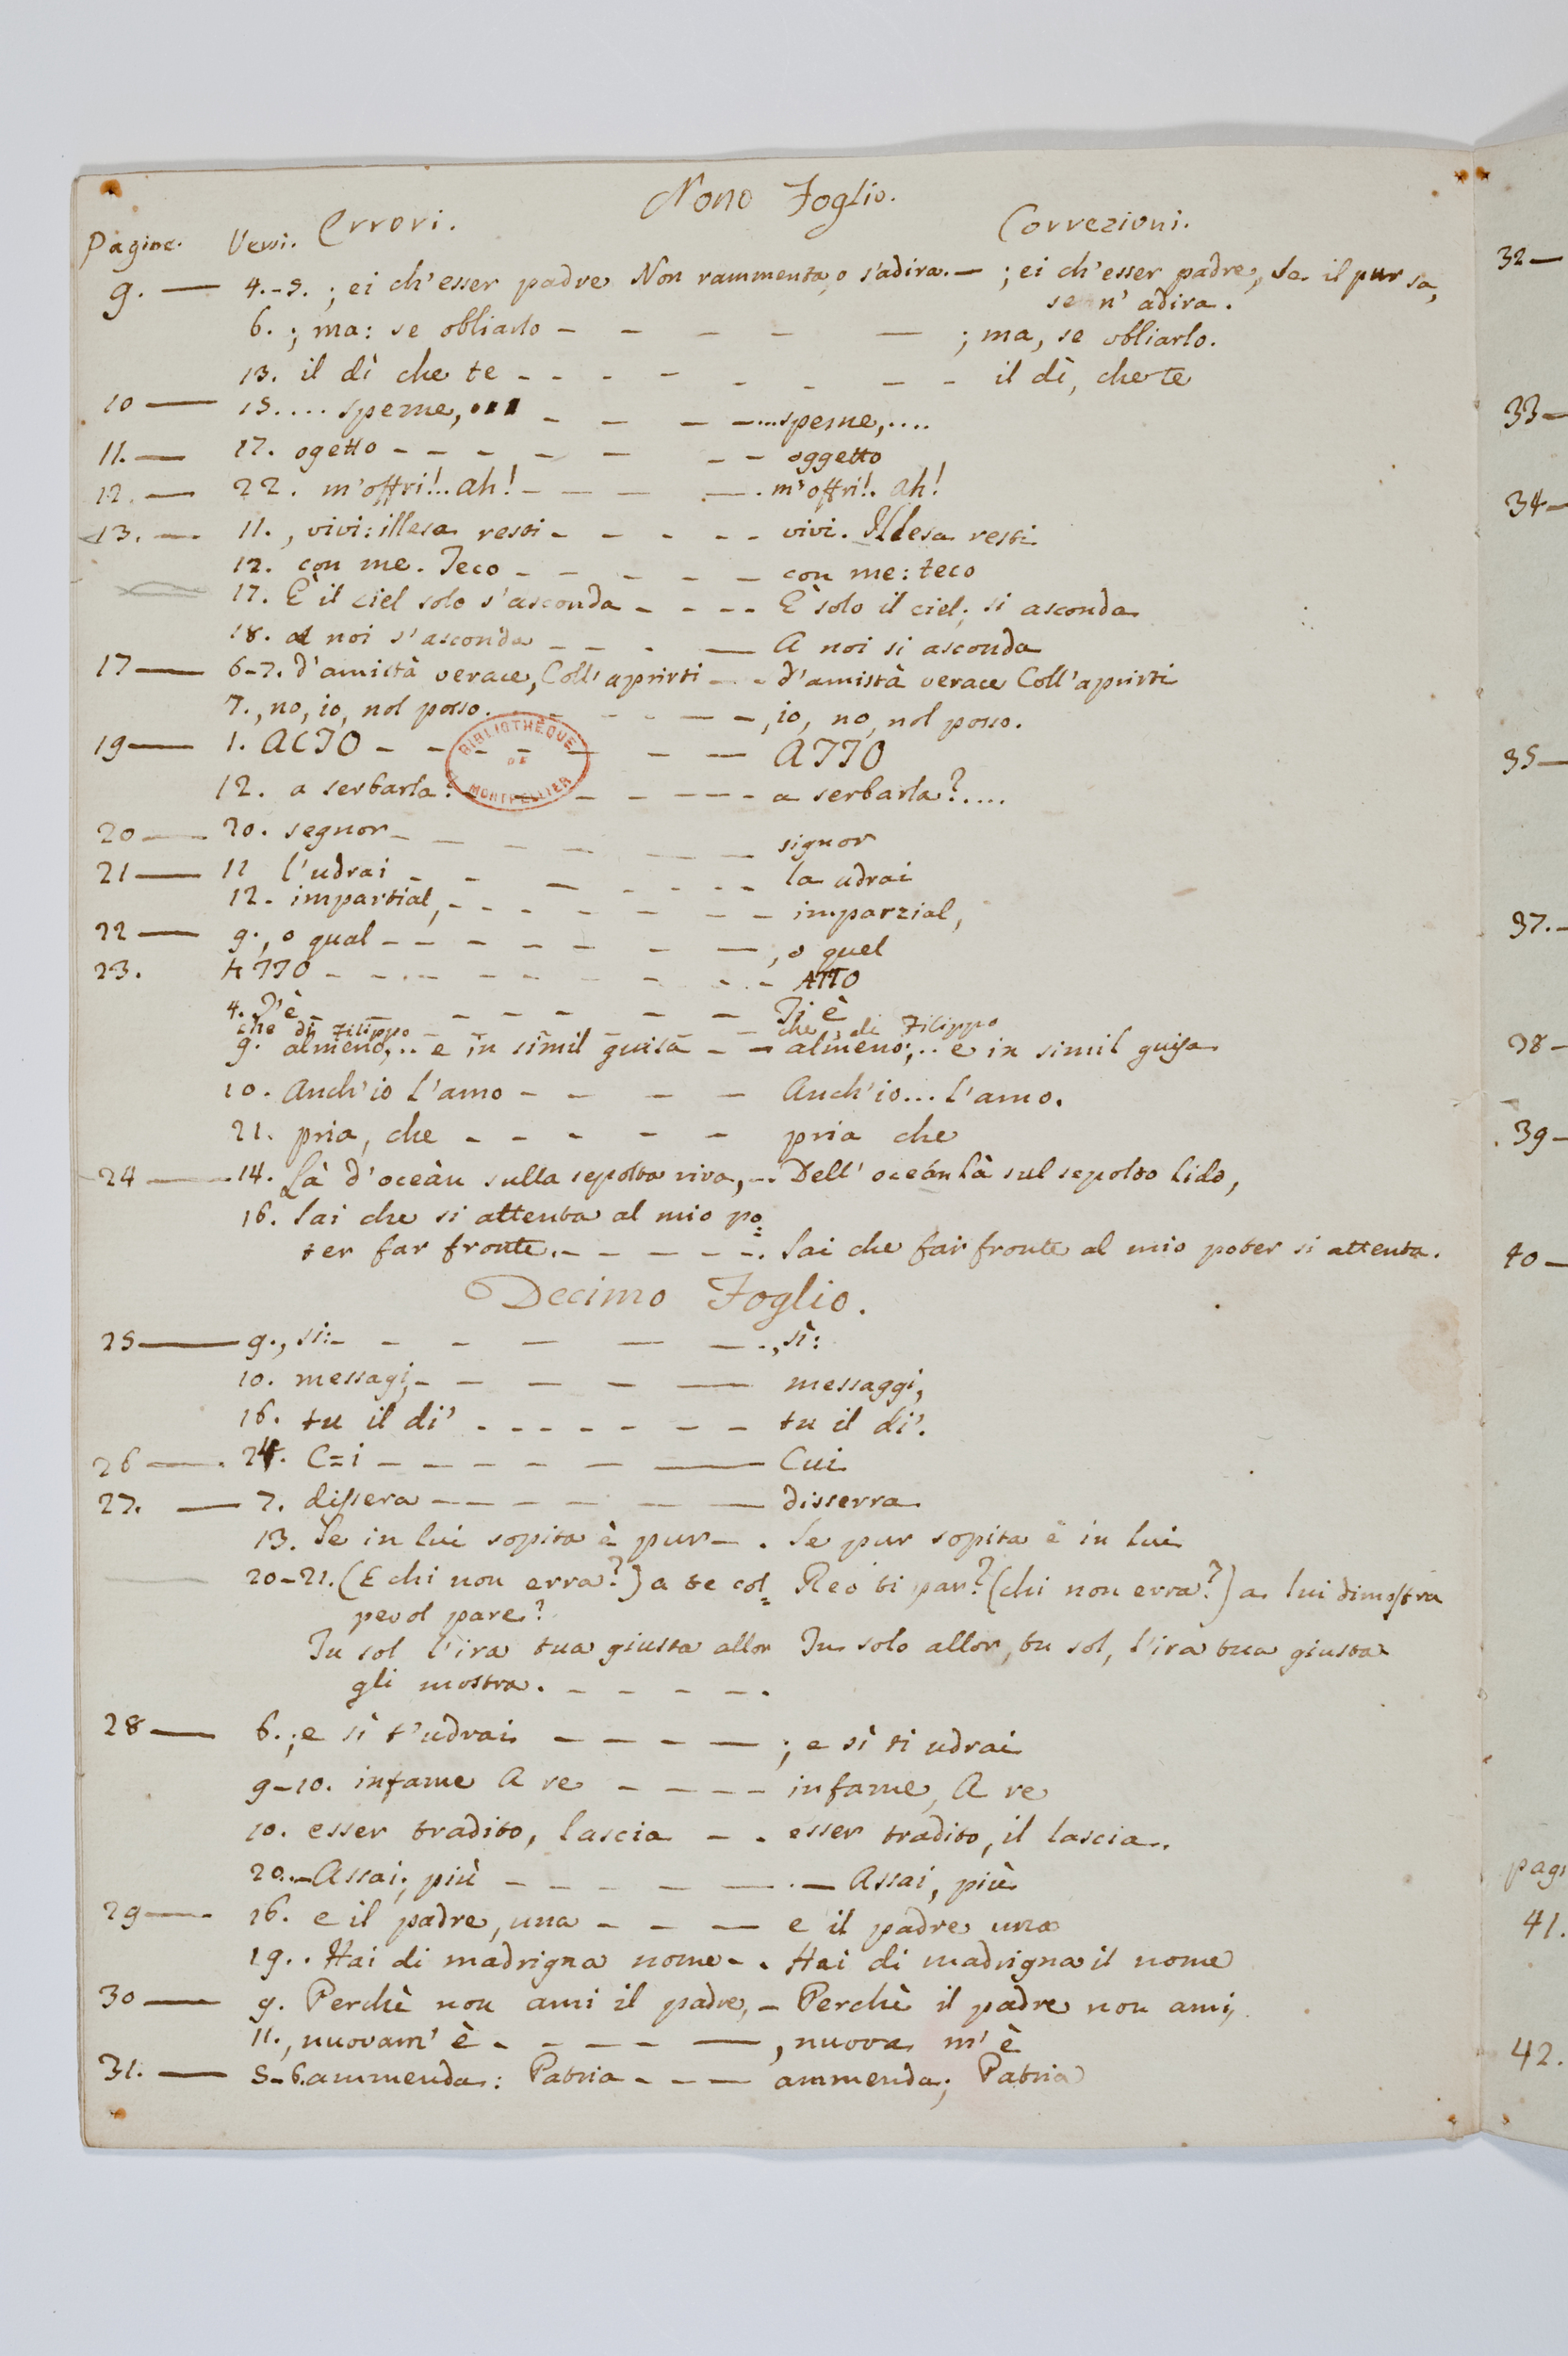 Nono Foglio.
Pagine. Versi. Errori. Correzioni.
9. — 4.-5. ; ei ch'esser padre Non rammenta, o s'adira. — ; ei ch'esser padre, Se il pur sa,
se n' adira.
6. ; ma: se obliarlo - - - - — ; ma, se obliarlo.
13. il dì che te - - - - - - - - il dì, che te
10 — 15. ... speme, ... - - - - ... speme, ....
11. — 17. ogetto - - - - - - - oggetto
12. — 22. m'offri!.. Ah! - - - - . m'offri!. Ah!
13. — 11. , vivi: illesa resti - - - - - vivi. Illesa resti
12. con me. Teco - - - - - con me: teco
17. È il ciel solo s'asconda - - - - È solo il ciel; si asconda
18. A noi s'asconda - - - — A noi si asconda
17 — 6-7. d'amistà verace, Coll'aprirti - - - d'amistà verace Coll'aprirti
7. , no, io, nol posso. - - - - - , io, no, nol posso.
19 — 1. ACTO - - - - - - — ATTO
BIBLIOTHÈQUE DE MONTPELLIER
12. a serbarla? - - - - - - a serbarla?....
20 — 20. segnor - - - - - - signor
21 — 11 l'udrai - - - - - - - la udrai
12. impartial, - - - - - - - - imparzial,
22 — 9. , o qual - - - - - - — , o quel
23. ATTO - - - - - - - - - ATTO
4. T'è - - - - - - Ti è
che di Filippo - - che, di Filippo
9. almeno,.. e in simil guisa - - almeno;.. e in simil guisa
10. Anch'io l'amo - - - - Anch'io... l'amo.
21. pria, che - - - - - pria che
24 — 14. Là d'oceàn sulla sepolta riva, -. Dell' oceàn là sul sepolto lido,
16. Sai che si attenta al mio po=
ter far fronte. - - - - - -. Sai che far fronte al mio poter si attenta.
Decimo Foglio.
25 — 9., si: - - - - - - -. , sì:
10. messagi, - - - - — messaggi,
16. tu il di' - - - - - - - tu il di'.
26 — . 24. C=i - - - - - — Cui
27. — 7. dissera - - - - - - - disserra
13. Se in lui sopita è pur - . Se pur sopita è in lui
20-21. (E chi non erra?) a te col= Reo ti par? (chi non erra?) a lui dimostra
pevol pare?
Tu sol l'ira tua giusta allor Tu solo allor, tu sol, l'ira tua giusta
gli mostra. - - - - - .
28 — 6. ; e sì t'udrai - - - - — ; e sì ti udrai
9-10. infame A re - - - - infame, A re
10. esser tradito, lascia - . esser tradito, il lascia.
20. - Assai; più - - - - - — . — Assai, più
29 — 16. e il padre, una - - — e il padre una
19. . Hai di madrigna nome - . Hai di madrigna il nome
30 — 9. Perchè non ami il padre, - Perchè il padre non ami,
11. , nuovam' è - - - - — , nuova m' è
31. — 5-6. ammenda: Patria - - — ammenda; Patria
32 —
33 —
34 —
35 —
37. -
38 -
39 -
40 —
pag
41.
42.